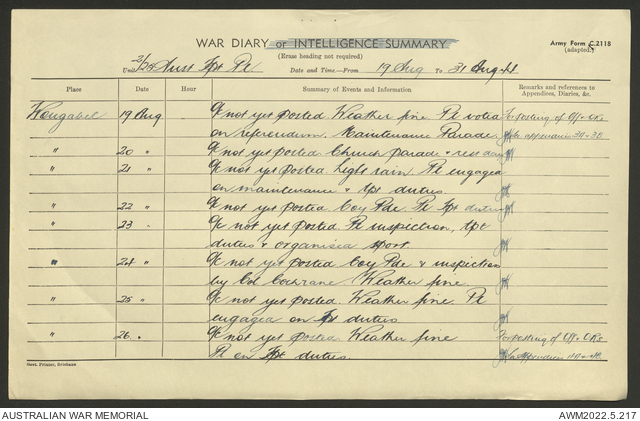 WAR DIARY or INTELLIGENCE SUMMARY
(Erase heading not required)
Army Form C.2118
(adapted)
Unit Aust Tpt Pl Date and Time—From 19 Aug To 31 Aug 44
Place Date Hour Summary of Events and Information Remarks and references to
Appendices, Diaries, &c.
Wongabel 19 Aug Oc not yet posted Weather fine Pl voted For posting of Off & ORs
on referendum. Maintenance Parade appendix
" 20 " Oc not yet posted. Church parade & rest day
" 21 " Oc not yet posted Light rain. Pl engaged
on maintenance & tpt duties.
" 22 " Oc not yet posted Coy Pde. Pl Tpt duties
" 23 . Oc not yet posted Pl inspection, tpt
duties & organised sport.
" 24 " Oc not yet posted Coy Pde & inspection
by Col Cochrane. Weather fine.
" 25 " Oc not yet posted. Weather fine Pl
engaged on Tpt duties
" 26 . Oc not yet posted. Weather fine For posting of Off & ORs
Pl on Tpt duties. appendices
Govt. Printer, Brisbane
AUSTRALIAN WAR MEMORIAL AWM2022.5.217